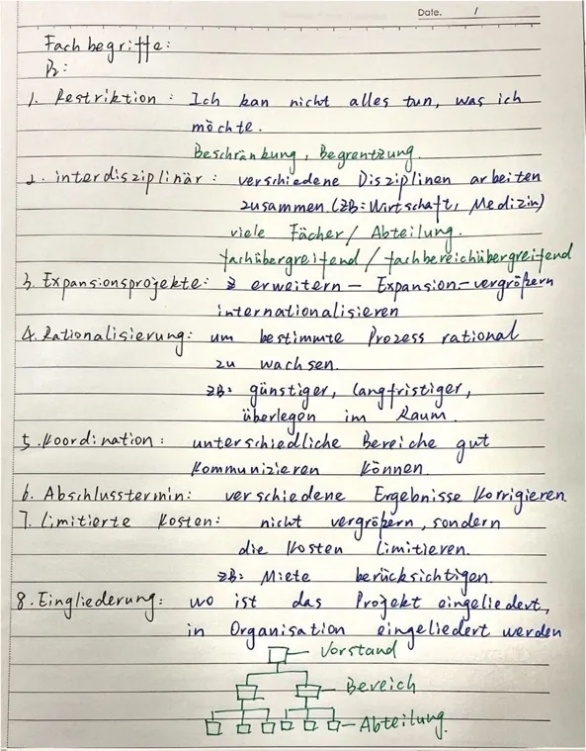 Date. /
Fachbegriffe:
B:
1. Restriktion: Ich kan nicht alles tun, was ich
möchte.
Beschränkung, Begrentzung.
2. interdisziplinär: verschiedene Disziplinen arbeiten
zusammen (ZB: Wirtschaft, Medizin)
viele Fächer / Abteilung.
fachübergreifend / fachbereichübergreifend
3. Expansionsprojekte: erweitern — Expansion — vergrößern
internationalisieren
4. Rationalisierung: um bestimmte Prozess rational
zu wachsen.
ZB: günstiger, langfristiger,
überlegen im Raum.
5. Koordination: unterschiedliche Bereiche gut
kommunizieren können.
6. Abschlusstermin: verschiedene Ergebnisse korrigieren.
7. limitierte Kosten: nicht vergrößern, sondern
die Kosten limitieren.
ZB: Miete berücksichtigen.
8. Eingliederung: wo ist das Projekt eingeliedert,
in Organisation eingeliedert werden
Vorstand
Bereich
Abteilung.